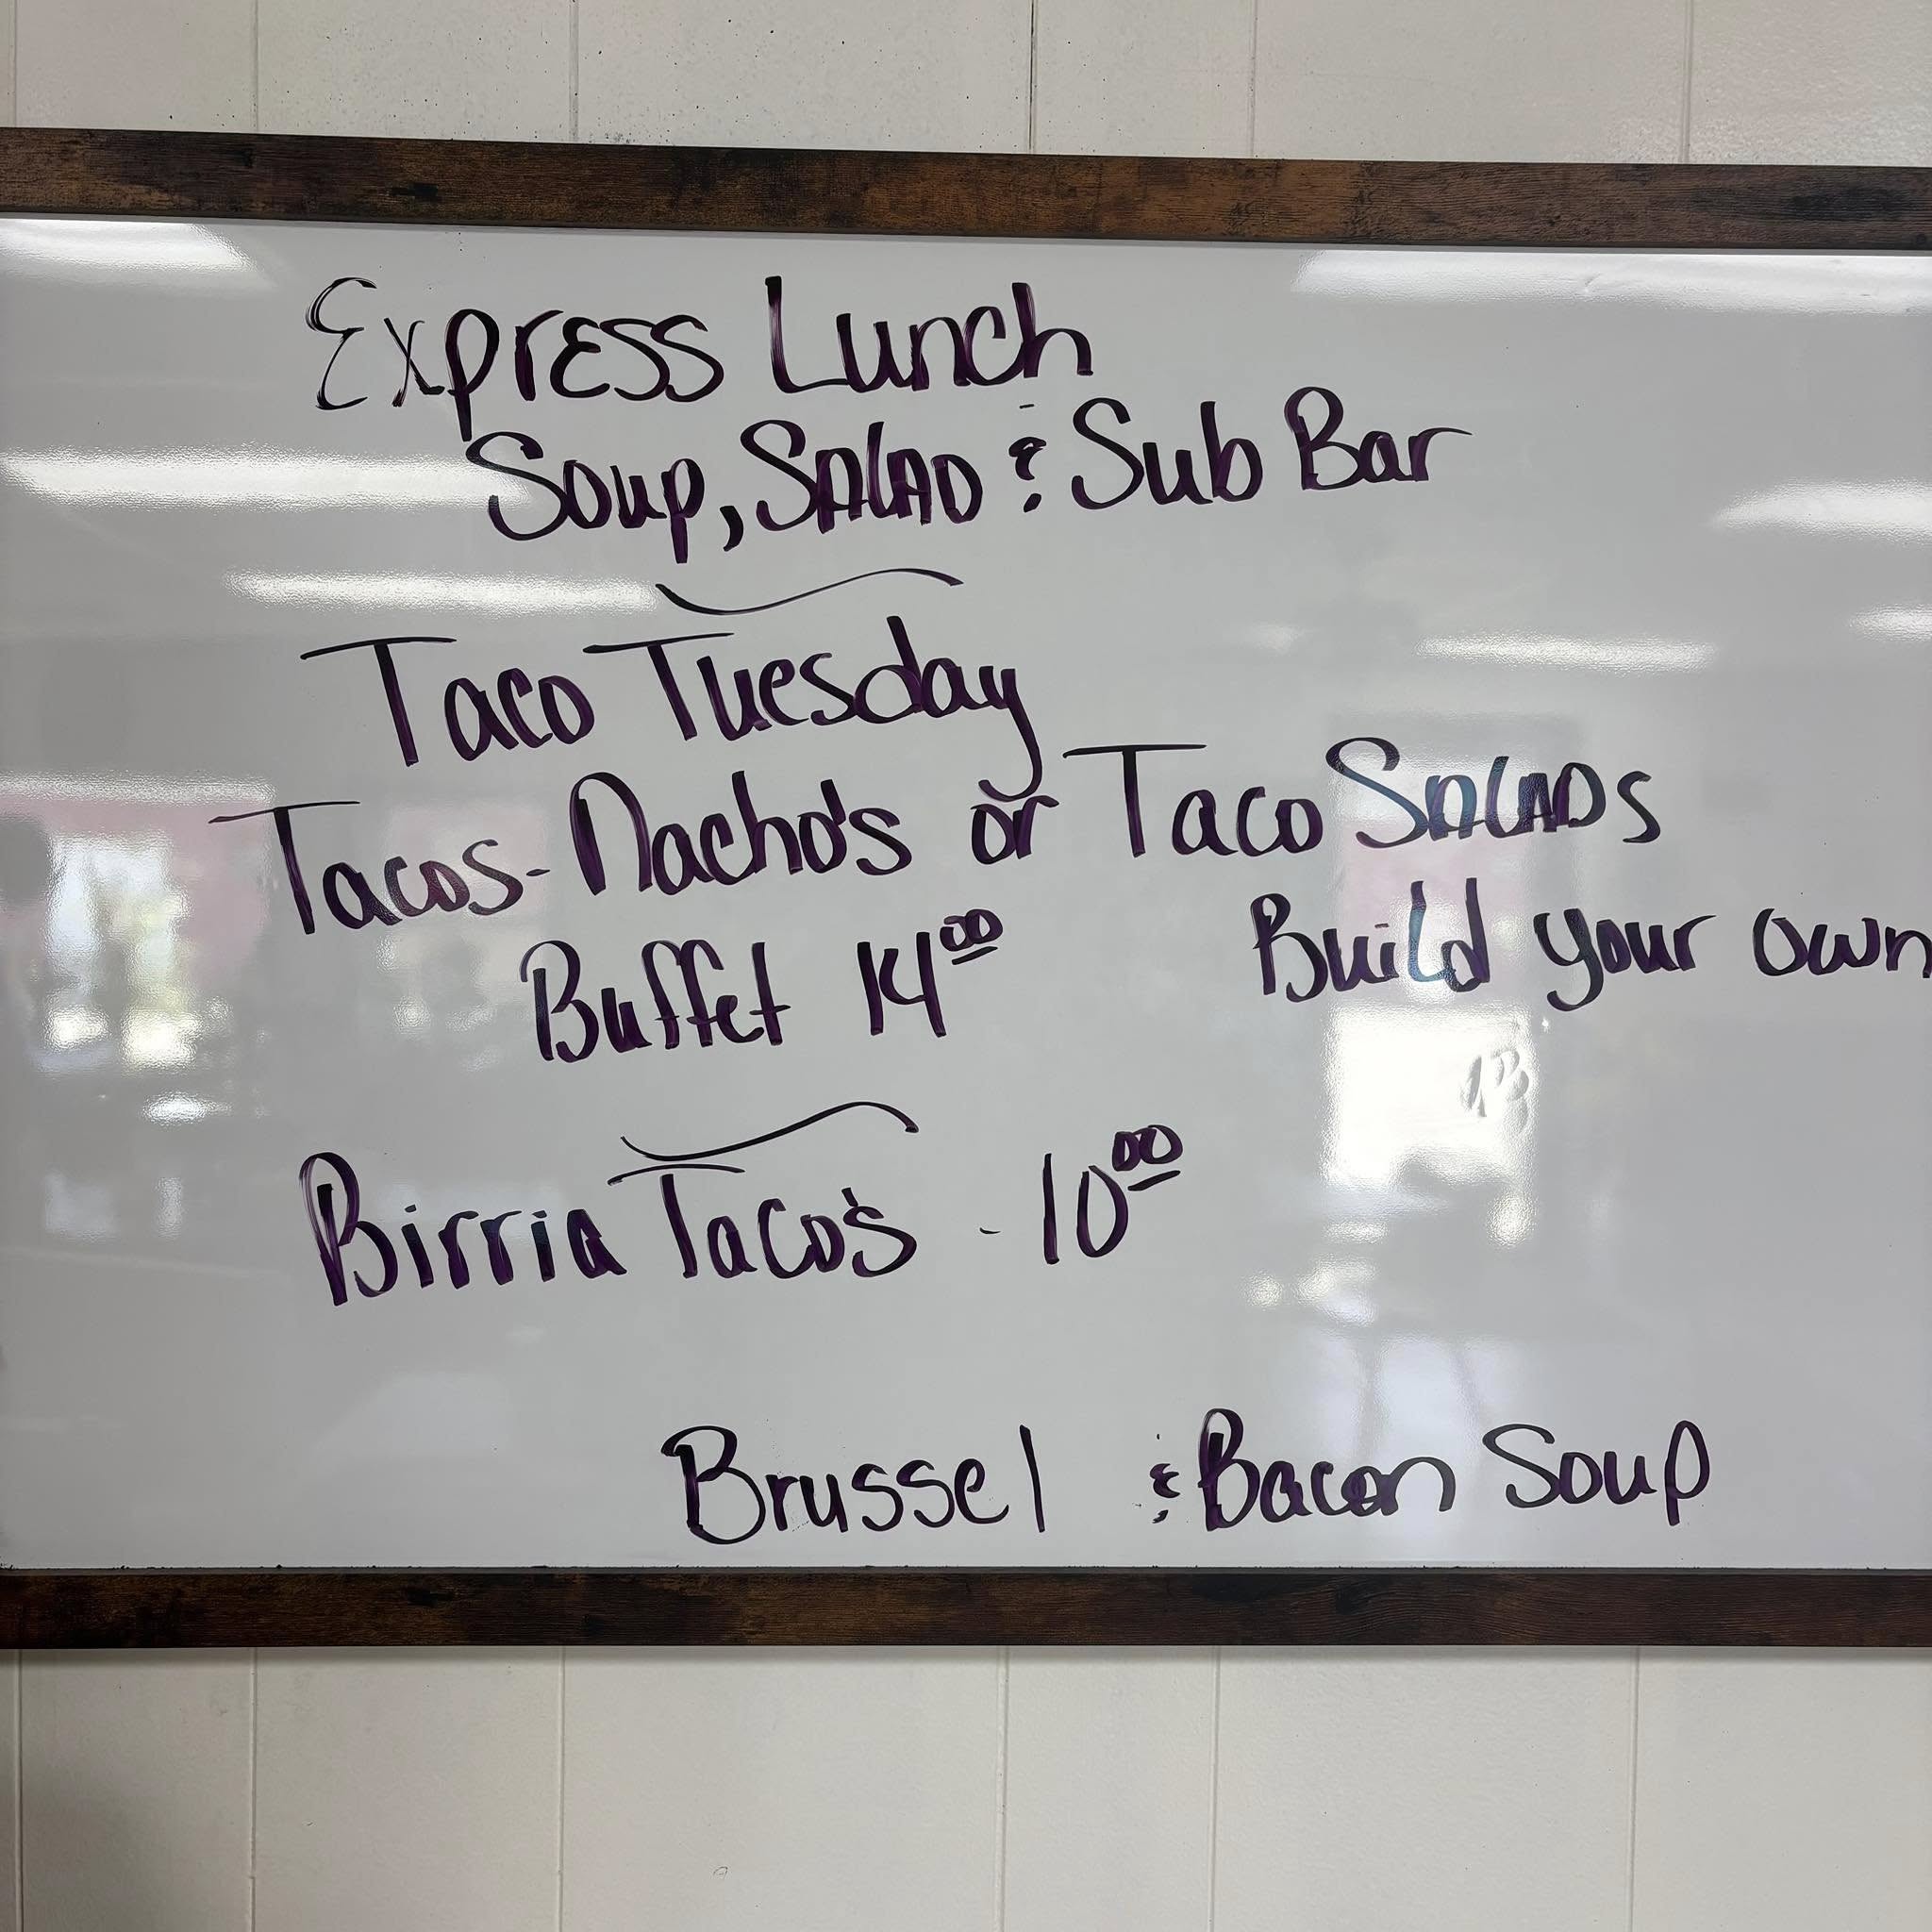 Express Lunch
Soup, Salad & Sub Bar
Taco Tuesday
Tacos - Nacho's or Taco Salads
Buffet 14⁰⁰ Build your own
Birria Taco's - 10⁰⁰
Brussel & Bacon Soup